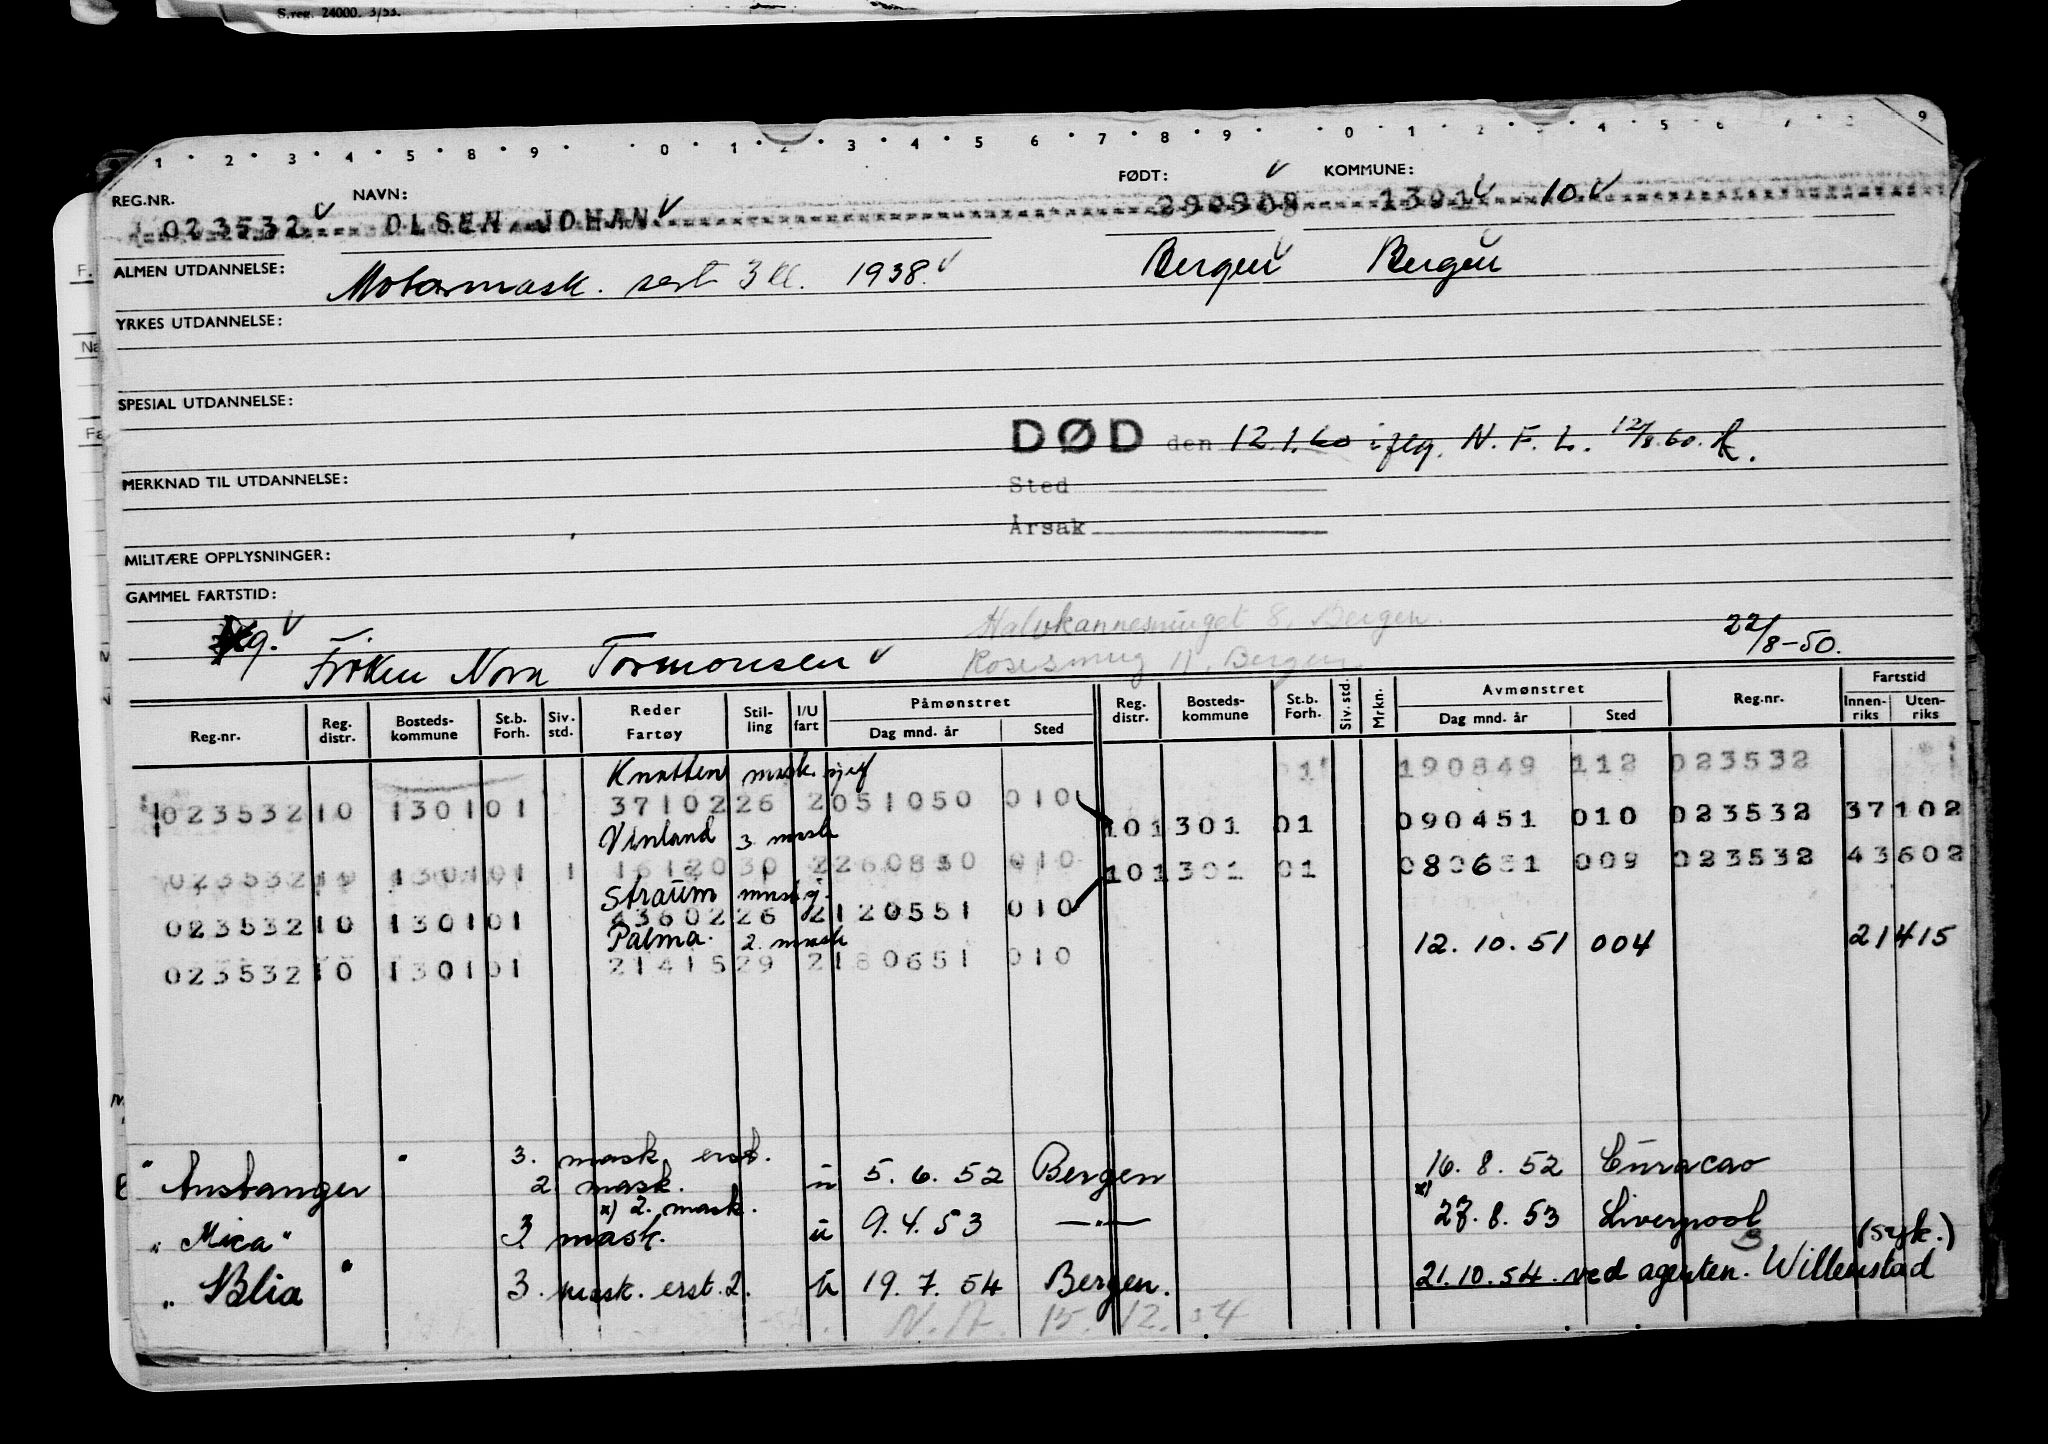 S.reg. 24000. 3/53.
1 2 3 4 5 8 9 0 1 2 3 4 5 6 7 8 9 0 1 2 3 4 5 6 7 8 9
REG.NR. NAVN: FØDT: KOMMUNE:
023532 OLSEN, JOHAN 290908 1301 10
ALMEN UTDANNELSE: Motormask. sert 3 kl. 1938. Bergen Bergen
YRKES UTDANNELSE:
SPESIAL UTDANNELSE:
DØD den 12.1.60 iflg. N. F. L. 12/8.60.
MERKNAD TIL UTDANNELSE:
Sted
Årsak
MILITÆRE OPPLYSNINGER:
GAMMEL FARTSTID:
Halvkannesmuget 8, Bergen.
Fröken Nora Tormodsen 22/8-50.
Rosesmug 11, Bergen.
Reg.nr. Reg. distr. Bosteds-kommune St.b. Forh. Siv. std. Reder Fartøy Stil-ling I/U fart Påmønstret Dag mnd. år Sted Reg. distr. Bosteds-kommune St.b. Forh. Siv. std. Mrkn. Avmønstret Dag mnd. år Sted Reg.nr. Fartstid Innen-riks Uten-riks
Knatten mask. sjef 190849 112 023532
023532 10 1301 01 37102 26 2 051050 010
Vinland 3 mask 10 1301 01 090451 010 023532 37102
023532 10 1301 01 1 16120 30 2 260850 010
Straum mask.
10 1301 01 080651 009 023532 43602
023532 10 1301 01 43602 26 2 120551 010
Palma. 2. mask 12. 10. 51 004 21415
023532 10 1301 01 21415 29 2 180651 010
3. mask. erst.
" Austanger " 2. mask. u 5. 6. 52 Bergen 16. 8. 52 Curacao
x) 2. mask.
" Mica " 3 mask. u 9. 4. 53 —"— x) 27. 8. 53 Liverpool (syk.)
" Blia " 3. mask. erst. 2. u 19. 7. 54 Bergen. 21. 10. 54. ved agenten. Willemstad
N. A. 15. 12. 54